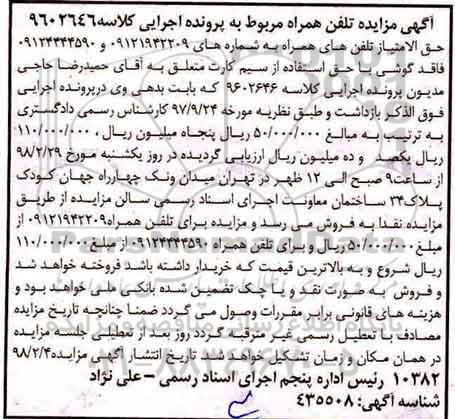 آگهی مزایده تلفن همراه مربوط به پرونده اجرایی کلاسه۹۶۰۲۶۴۶
حق الامتیاز تلفن های همراه به شماره های ۰۹۱۲۱۹۴۲۲۰۹ و ۰۹۱۲۴۴۴۳۵۹۰
فاقد گوشی با حق استفاده از سیم کارت متعلق به آقای حمیدرضا حاجی
مدیون پرونده اجرایی کلاسه ۹۶۰۲۶۴۶ که بابت بدهی وی درپرونده اجرایی
فوق الذکر بازداشت و طبق نظریه مورخه ۹۷/۹/۲۴ کارشناس رسمی دادگستری
به ترتیب به مبالغ ۵۰/۰۰۰/۰۰۰ ریال پنجاه میلیون ریال ، ۱۱۰/۰۰۰/۰۰۰
ریال یکصد و ده میلیون ریال ارزیابی گردیده در روز یکشنبه مورخ ۹۸/۲/۲۹
از ساعت۹ صبح الی ۱۲ ظهر در تهران میدان ونک چهارراه جهان کودک
پلاک۳۴ ساختمان معاونت اجرای اسناد رسمی سالن مزایده از طریق
مزایده نقدا به فروش می رسد و مزایده برای تلفن همراه۰۹۱۲۱۹۴۲۲۰۹ از
مبلغ۵۰/۰۰۰/۰۰۰ ریال و برای تلفن همراه ۰۹۱۲۴۴۴۳۵۹۰ از مبلغ۱۱۰/۰۰۰/۰۰۰
ریال شروع و به بالاترین قیمت که خریدار داشته باشد فروخته خواهد شد
و فروش به صورت نقد و یا چک تضمین شده بانکی ملی خواهد بود و
هزینه های قانونی برابر مقررات وصول می گردد ضمنا چنانچه تاریخ مزایده
مصادف با تعطیل رسمی غیر مترقبه گردد روز بعد از تعطیلی جلسه مزایده
در همان مکان و زمان تشکیل خواهد شد تاریخ انتشار آگهی مزایده۹۸/۲/۴
۱۰۳۸۲ رئیس اداره پنجم اجرای اسناد رسمی – علی نژاد
شناسه آگهی: ۴۳۵۵۰۸